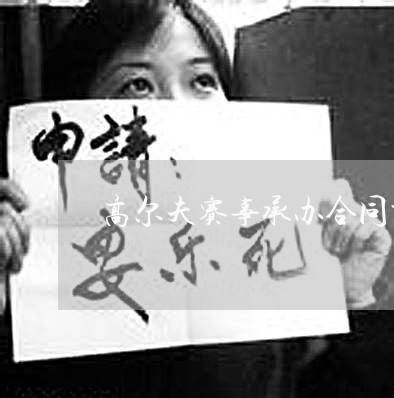 申請：
高尔夫赛事承办合同
安乐死